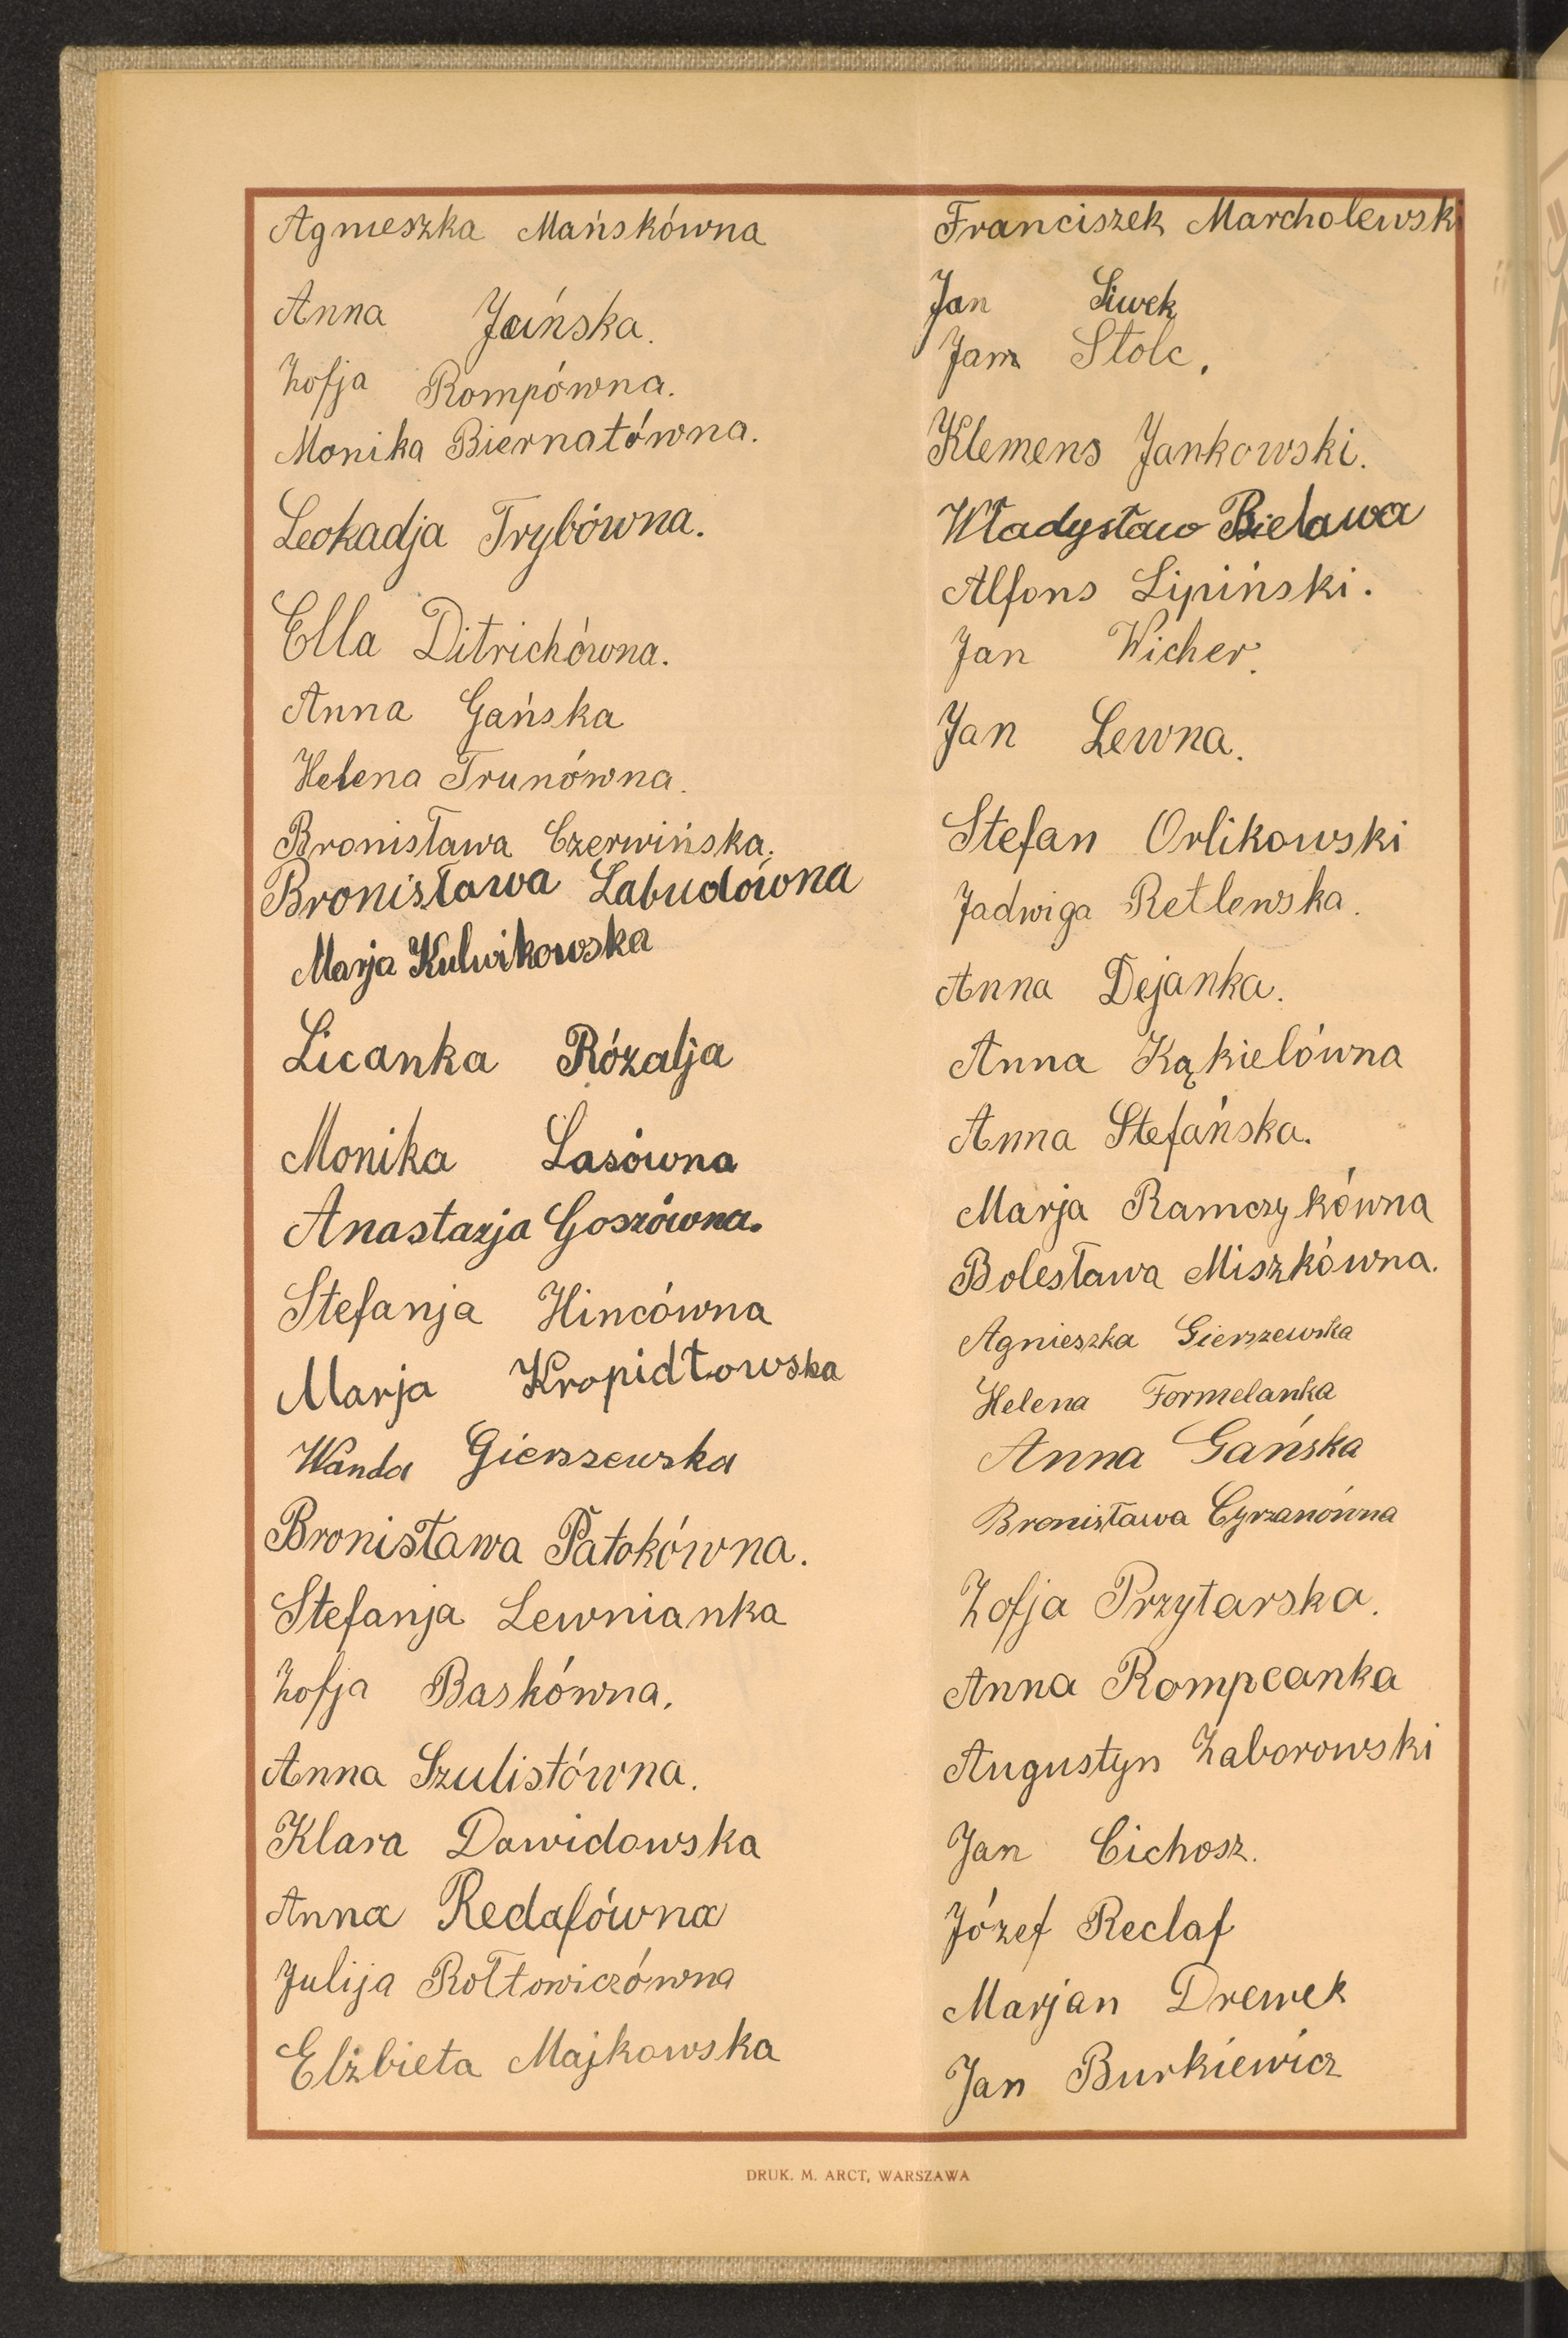 Agnieszka Mańskówna
Anna Jańska.
Zofja Rompówna.
Monika Biernatówna.
Leokadja Trybówna.
Ella Ditrichówna.
Anna Gańska
Helena Trunówna.
Bronisława Czerwińska.
Bronisława Labudówna
Marja Kulwikowska
Licanka Rózalja
Monika Lasówna
Anastazja Goszówna.
Stefanja Hincówna
Marja Kropidłowska
Wanda Gierszewska
Bronisława Patokówna.
Stefanja Lewnianka
Zofja Baskówna.
Anna Szulistówna.
Klara Dawidowska
Anna Redafówna
Julija Rołtowiczówna
Elżbieta Majkowska
Franciszek Marcholewski
Jan Siwek
Jan Stolc.
Klemens Jankowski.
Władysław Bielawa
Alfons Lipiński.
Jan Wicher.
Jan Lewna.
Stefan Orlikowski
Jadwiga Retlewska.
Anna Dejanka.
Anna Kąkielówna
Anna Stefańska.
Marja Ramczykówna
Bolesława Miszkówna.
Agnieszka Gierszewska
Helena Formelanka
Anna Gańska
Bronisława Cyrzanówna
Zofja Przytarska.
Anna Rompcanka
Augustyn Zaborowski
Jan Cichosz.
Józef Reclaf
Marjan Drewek
Jan Burkiewicz
DRUK. M. ARCT, WARSZAWA